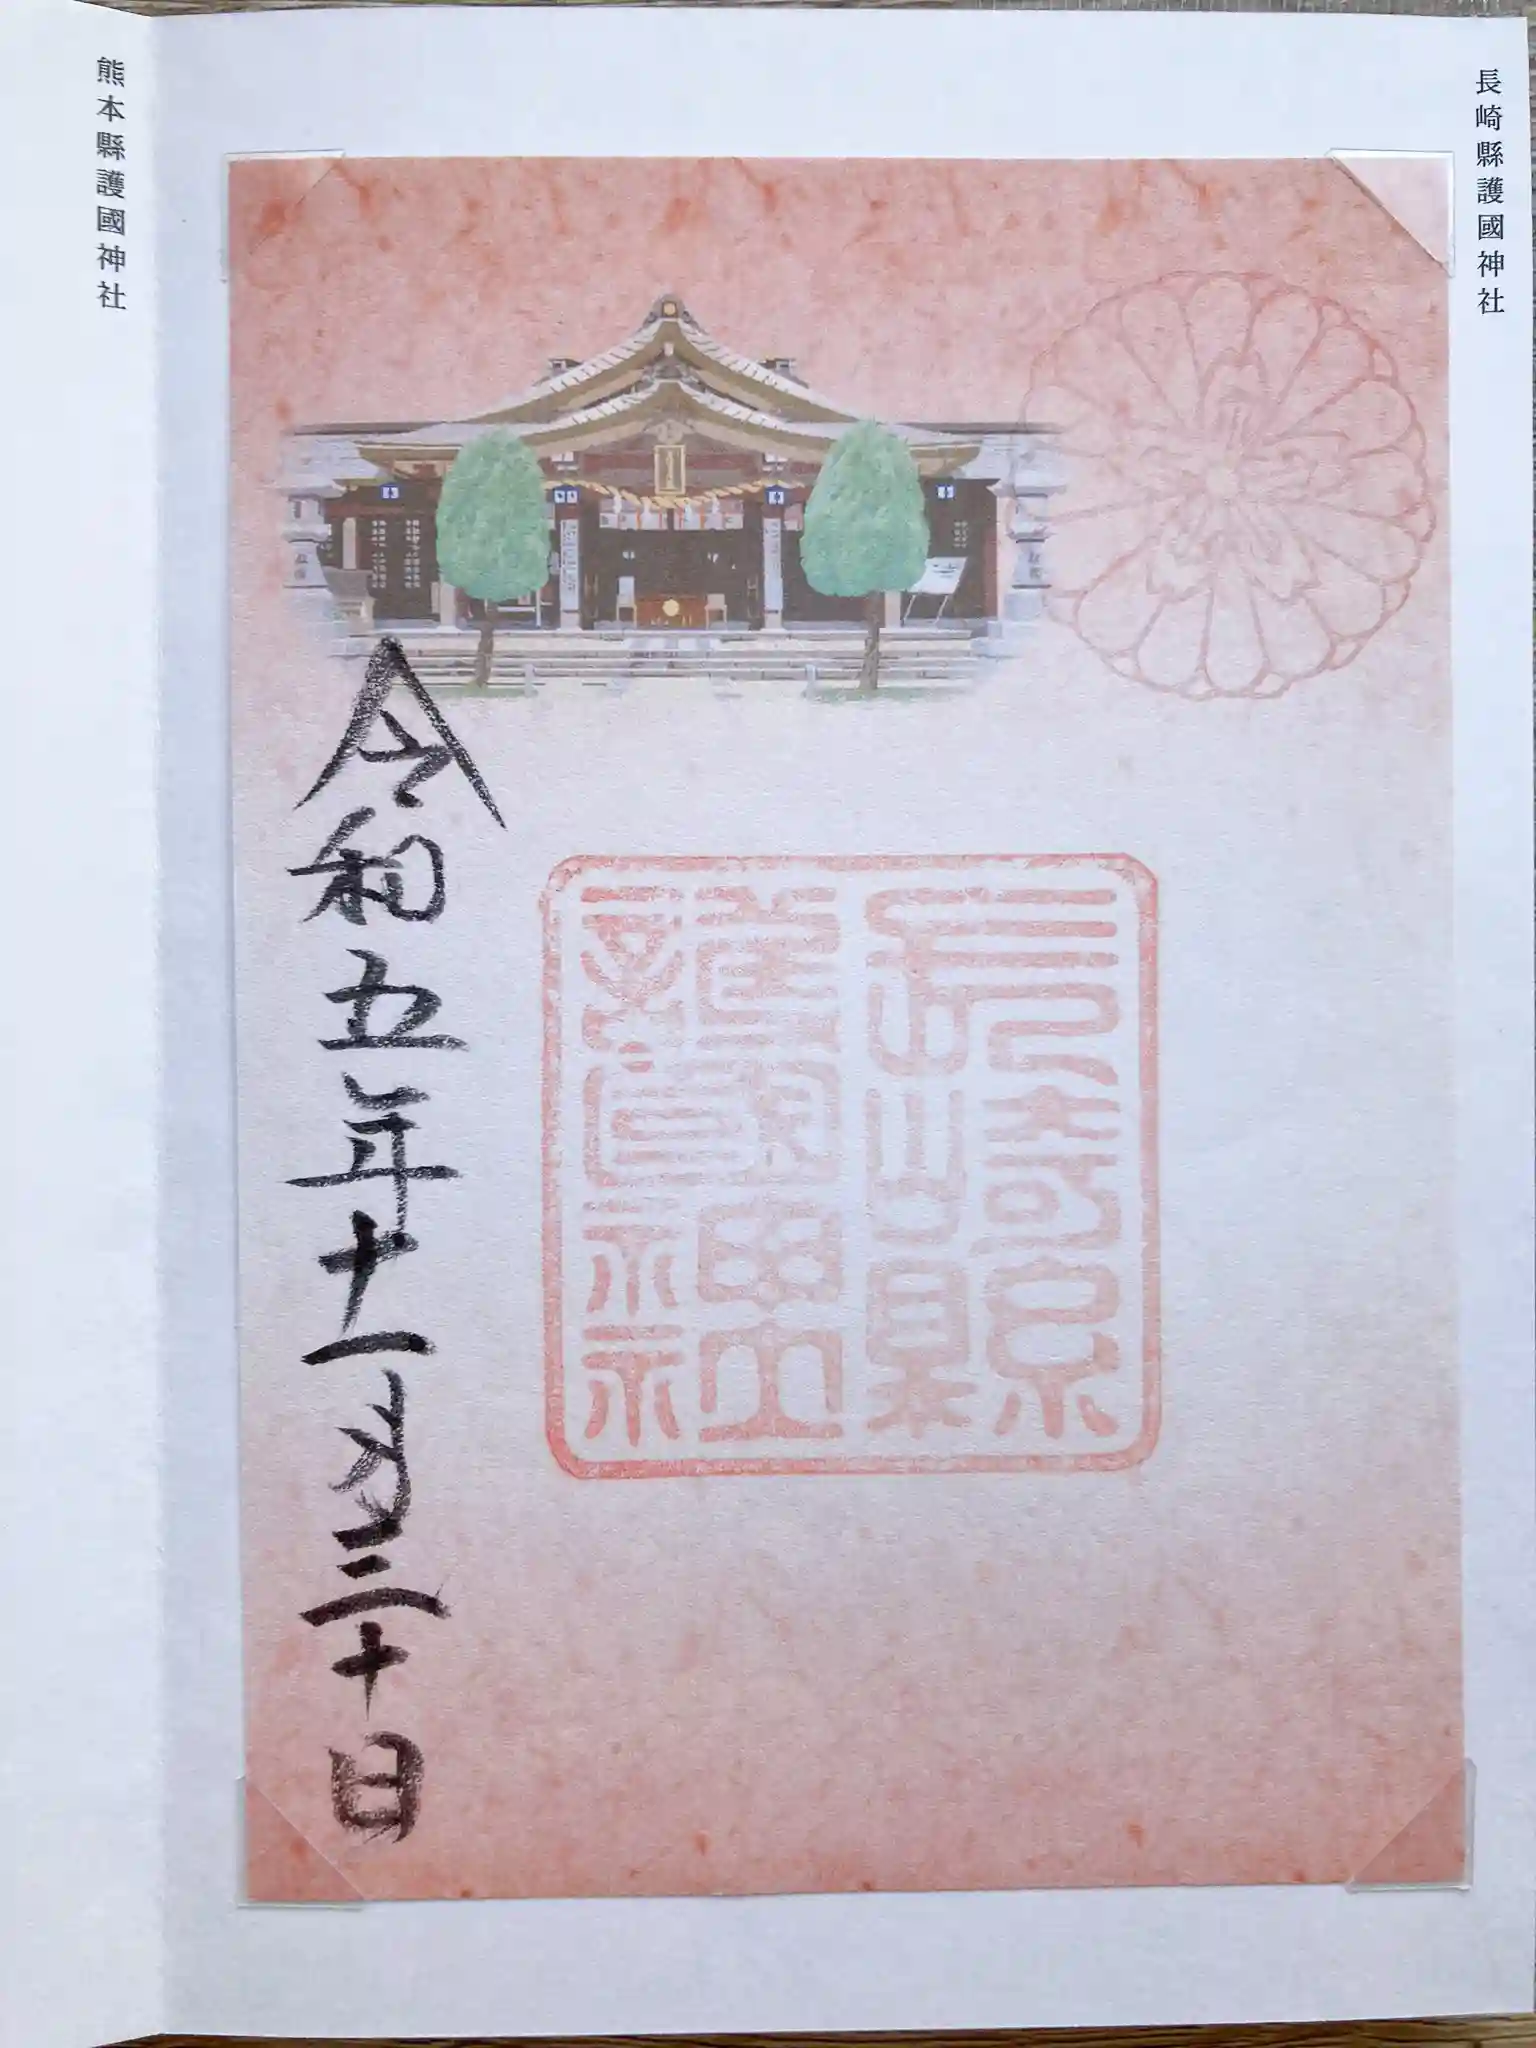 長崎縣護國神社
長崎縣
護國神社
令和五年十一月三十日
熊本縣護國神社